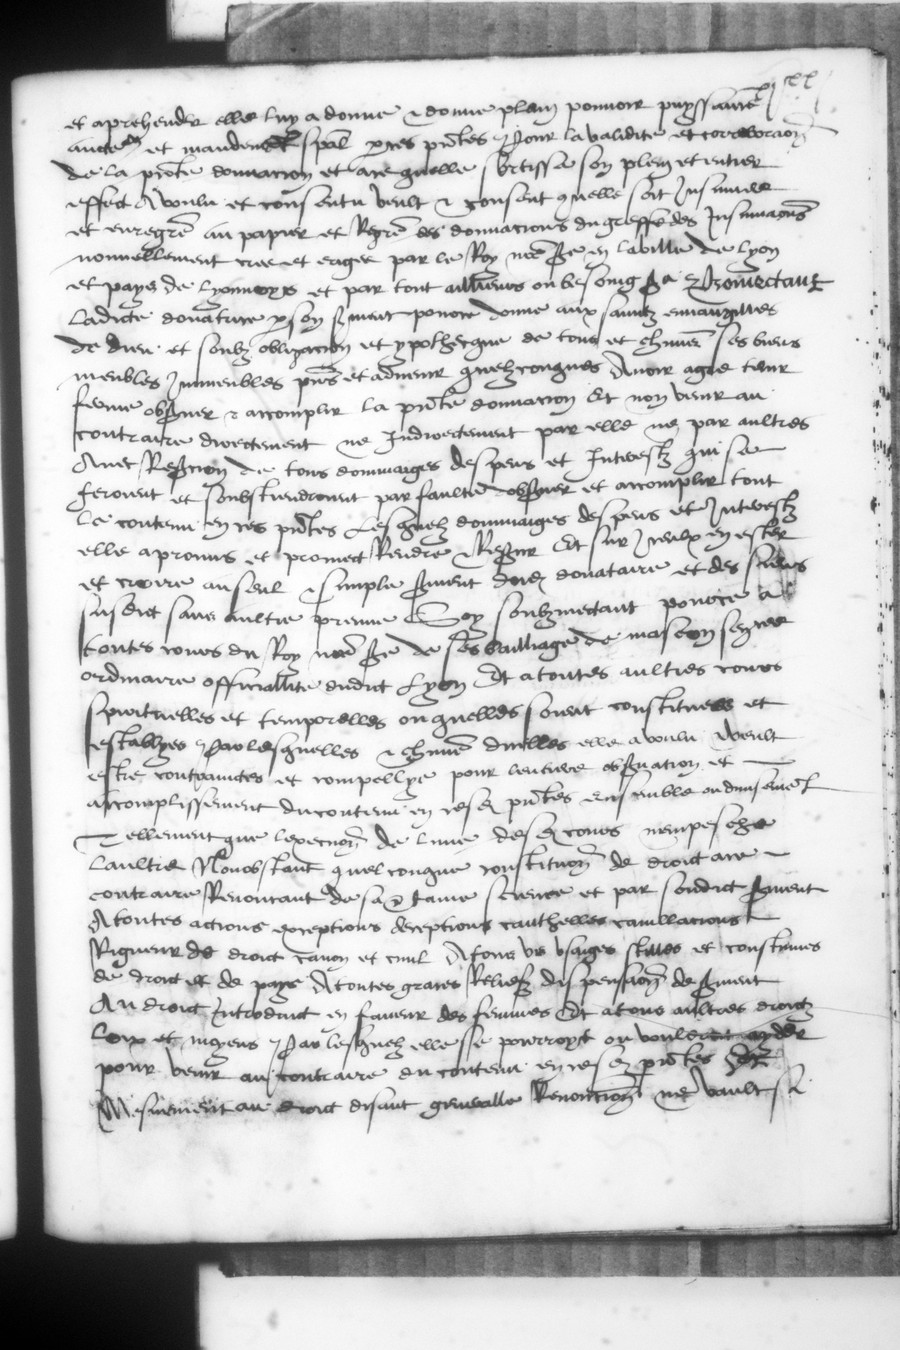 et aprehender elle luy a donne et donne plain pouvoir puyssance
aucte et mandement spal p ces pntes Pour la validite et corroboraon
de la pnte donnacion et ace quelle sortisse son plein et entier
effect A voulu et consentu veult et consent quelle soit Insinuee
et enregre au papier et Regre des donnacions du greffe des Insinuaons
nouvellement cree et erigee par le Roy nre sr en la ville de Lyon
et pays de Lyonnoys et par tout ailleurs ou besoing sa Promectant
Ladicte donatrice p son serment ponce donne aux sainctz euvangilles
de dieu et soubz obligacion et ypothecque de tous et chun ses biens
meubles Immeubles pns et advenir quelzconques Avoir agre tenir
ferme observer et accomplir la pnte donnacion Et non venir au
contraire directement ne Indirectement par elle ne par aultres
Avec Refection de tous dommaiges despens et Interestz qui se
feroient et soubstiendroient par faulte dobserver et accomplir tout
le contenu en ces pntes Lesquelz dommaiges despens et Interestz
elle a promis et promect Rendre et Refondr Et sur Iceulx en ester
et croire au seul et simple serment dud donataire et des siens
susdict sans aultre preuve Soy soubzmectant ponce a
toutes cours du Roy nre sr de ses bailliage de mascon senee
ordinaire officiallite dudict Lyon Et a toutes aultres cours
spirituelles et temporelles ou quelles soient constituees et
establyes Par lesquelles et chune dicelles elle a voulu et veult
estre contrainctes et compellye pour lentiere observation et
accomplissement du contenu en cesd pntes ensemble ou divisement
Tellement que lexecuon de lune desd cours nempesche
laultre Nonobstant quelconque constituon de droit ace
contraire Renoncant de sa certaine science et par sondict serment
A toutes actions exceptions deceptions cauthelles cavillacions
Rigueur de droit canon et civil A tous us usaiges stilles et coustumes
de droit et de pays A toutes graces Reliefz dispensaon de serment
Au droit Introduit en faveur des femmes Et a tous aultres droictz
Loix et moyens Par lesquelz elle se pourroyt ou vouldroit ayder
pour venir au contraire du contenu en cesd pntes
Mesmement au droit disant generalle Renonciaon ne vault si